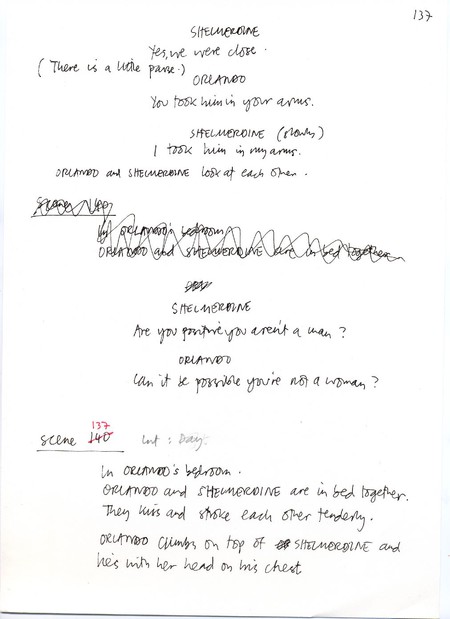 137
SHELMERDINE
Yes, we were close.
(There is a little pause.)
ORLANDO
You took him in your arms.
SHELMERDINE (slowly)
I took him in my arms.
ORLANDO and SHELMERDINE look at each other.
In ORLANDO's bedroom
ORLANDO and SHELMERDINE are in bed together
SHELMERDINE
Are you positive you aren't a man?
ORLANDO
Can it be possible you're not a woman?
137
Scene 140 Int: Day.
In ORLANDO's bedroom.
ORLANDO and SHELMERDINE are in bed together.
They kiss and stroke each other tenderly.
ORLANDO climbs on top of SHELMERDINE and
lies with her head on his chest